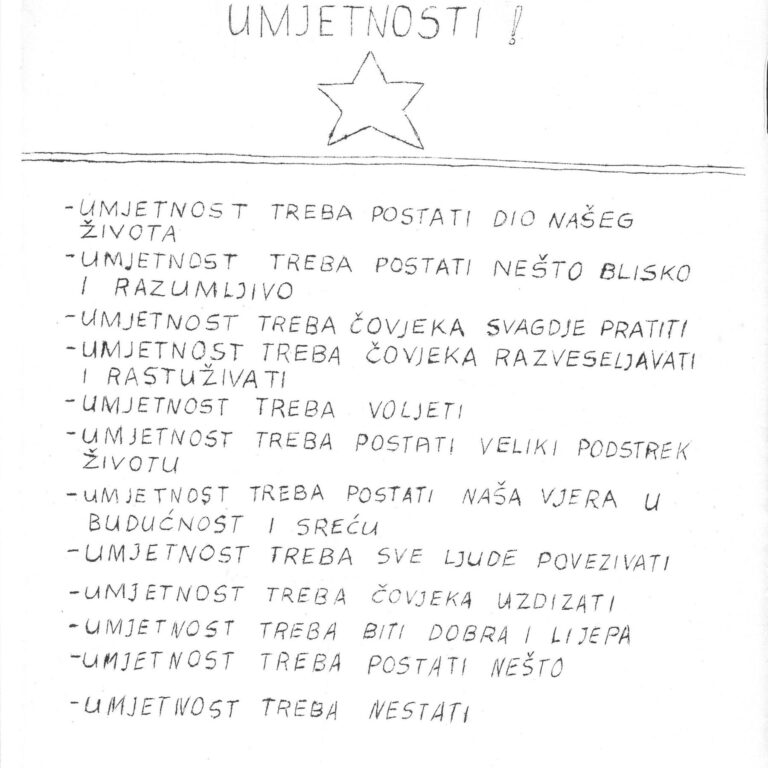 UMJETNOSTI !
-UMJETNOST TREBA POSTATI DIO NAŠEG
ŽIVOTA
-UMJETNOST TREBA POSTATI NEŠTO BLISKO
I RAZUMLJIVO
-UMJETNOST TREBA ČOVJEKA SVAGDJE PRATITI
-UMJETNOST TREBA ČOVJEKA RAZVESELJAVATI
I RASTUŽIVATI
-UMJETNOST TREBA VOLJETI
-UMJETNOST TREBA POSTATI VELIKI PODSTREK
ŽIVOTU
-UMJETNOST TREBA POSTATI NAŠA VJERA U
BUDUĆNOST I SREĆU
-UMJETNOST TREBA SVE LJUDE POVEZIVATI
-UMJETNOST TREBA ČOVJEKA UZDIZATI
-UMJETNOST TREBA BITI DOBRA I LIJEPA
-UMJETNOST TREBA POSTATI NEŠTO
-UMJETNOST TREBA NESTATI